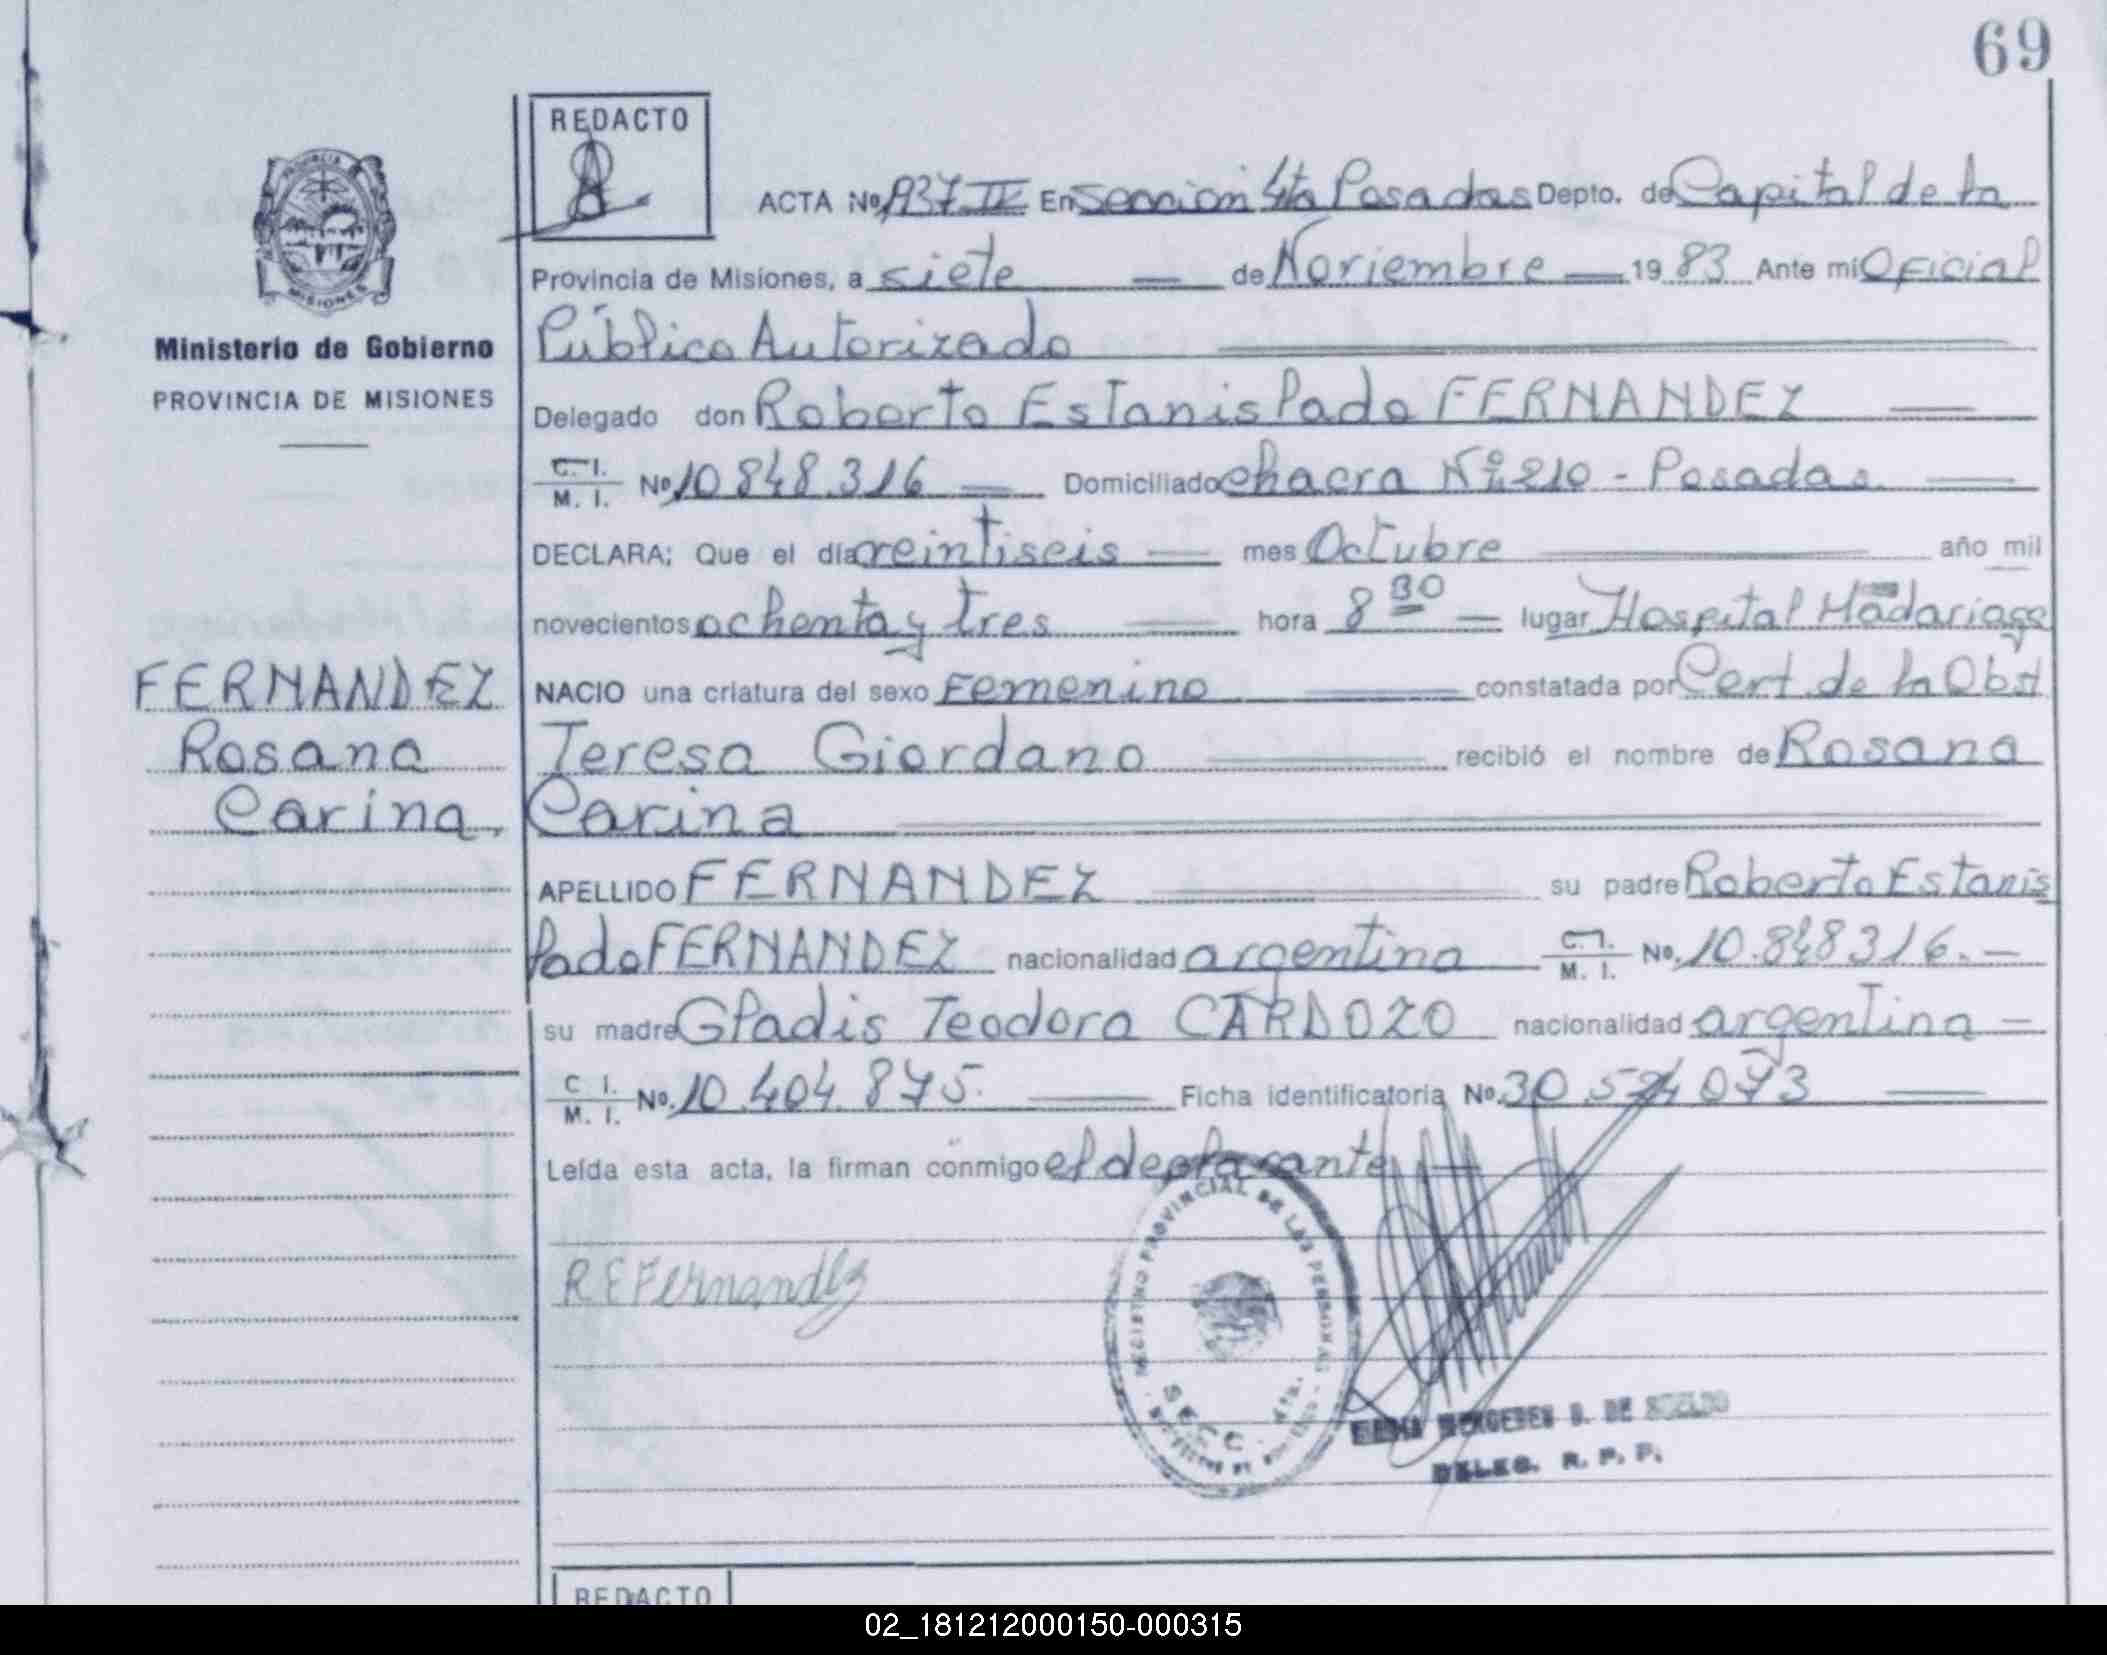 69
REDACTO
ACTA Nº 937 IV En Sección 4ta Posadas Depto. de Capital de la
Provincia de Misiones, a siete — de Noviembre — 1983 Ante mí Oficial
Público Autorizado
Delegado don Roberto Estanislado FERNANDEZ —
C. I. / M. I. Nº 10 848.316 — Domiciliado chacra Nº 210 - Posadas. —
DECLARA; Que el día veintiseis — mes Octubre — año mil
novecientos ochenta y tres — hora 8 30 — lugar Hospital Madariaga
NACIO una criatura del sexo Femenino — constatada por Cert. de la Obst
Teresa Giordano — recibió el nombre de Rosana
Carina
APELLIDO FERNANDEZ — su padre Roberto Estanis
lado FERNANDEZ nacionalidad argentina C. I. / M. I. No. 10.848316. —
su madre Gladis Teodora CARDOZO nacionalidad argentina —
C I. / M. I. No. 10.404.875. — Ficha identificatoria Nº 30.524 073 —
Leída esta acta, la firman conmigo el declarante —
R E Fernandez
REGISTRO PROVINCIAL DE LAS PERSONAS
SECC. 4ta.
MERCEDES B. DE
DELEG. R. P. P.
PROVINCIA
MISIONES
Ministerio de Gobierno
PROVINCIA DE MISIONES
FERNANDEZ
Rosana
Carina.
REDACTO
02_181212000150-000315